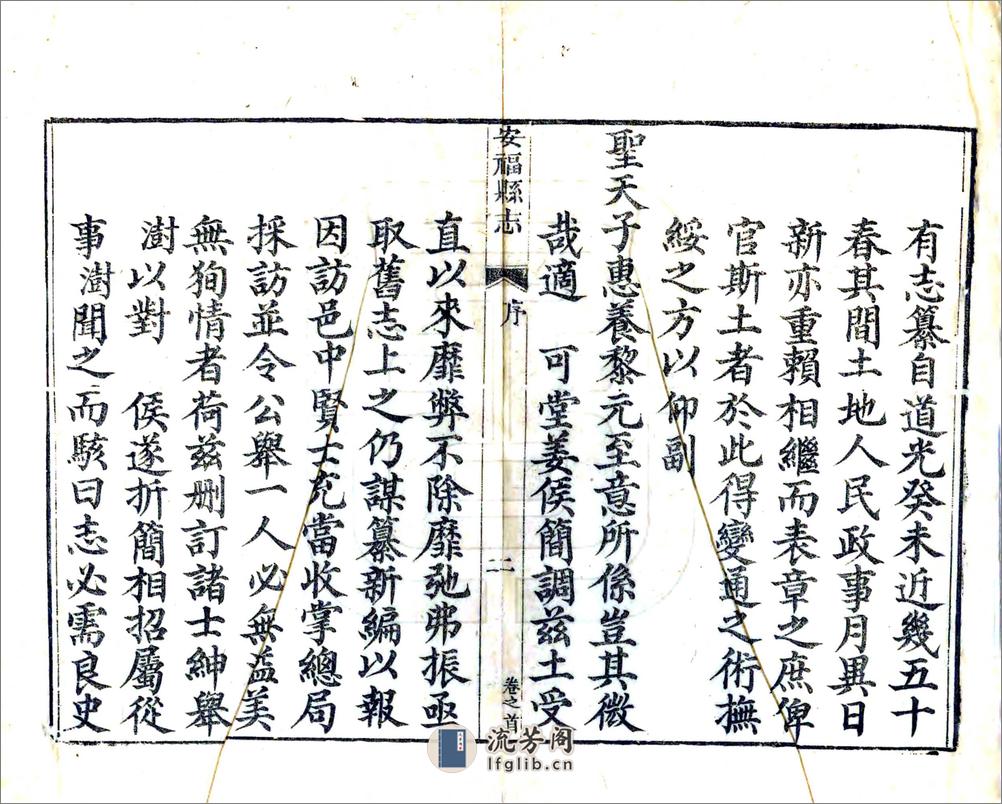 有志纂自道光癸未近幾五十
春其間土地人民政事月異日
新亦重賴相繼而表章之庶俾
官斯土者於此得變通之術撫
綏之方以仰副
聖天子惠養黎元至意所係豈其微
哉適 可堂姜侯簡調茲土受
安福縣志 序 二 卷之首
直以來靡弊不除靡弛弗振亟
取舊志上之仍謀纂新編以報
因訪邑中賢士充當收掌總局
採訪並令公舉一人必無溢美
無狥情者荷茲刪訂諸士紳舉
澍以對 侯遂折簡相招屬從
事澍聞之而駭曰志必需良史
流芳阁
lfglib.cn